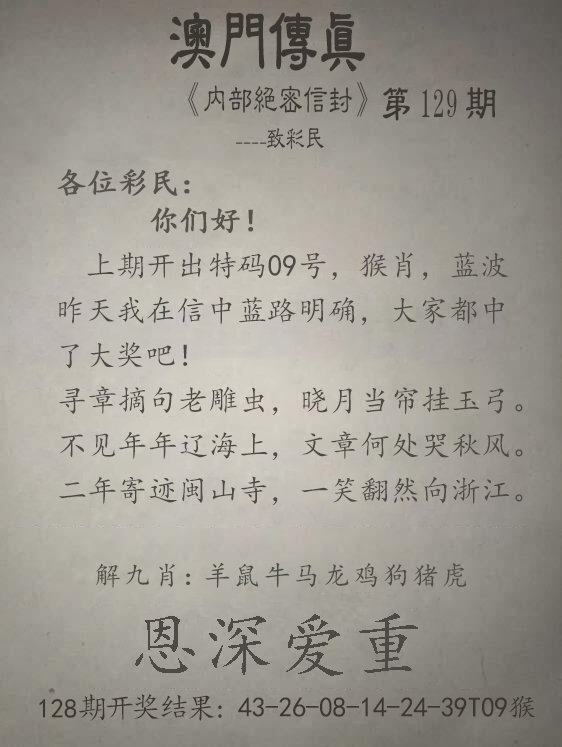 澳門傳真
《内部絕密信封》第129期
----致彩民
各位彩民：
你们好！
上期开出特码09号，猴肖，蓝波
昨天我在信中蓝路明确，大家都中
了大奖吧！
寻章摘句老雕虫，晓月当帘挂玉弓。
不见年年辽海上，文章何处哭秋风。
二年寄迹闽山寺，一笑翻然向浙江。
解九肖：羊鼠牛马龙鸡狗猪虎
恩深爱重
128期开奖结果：43-26-08-14-24-39T09猴